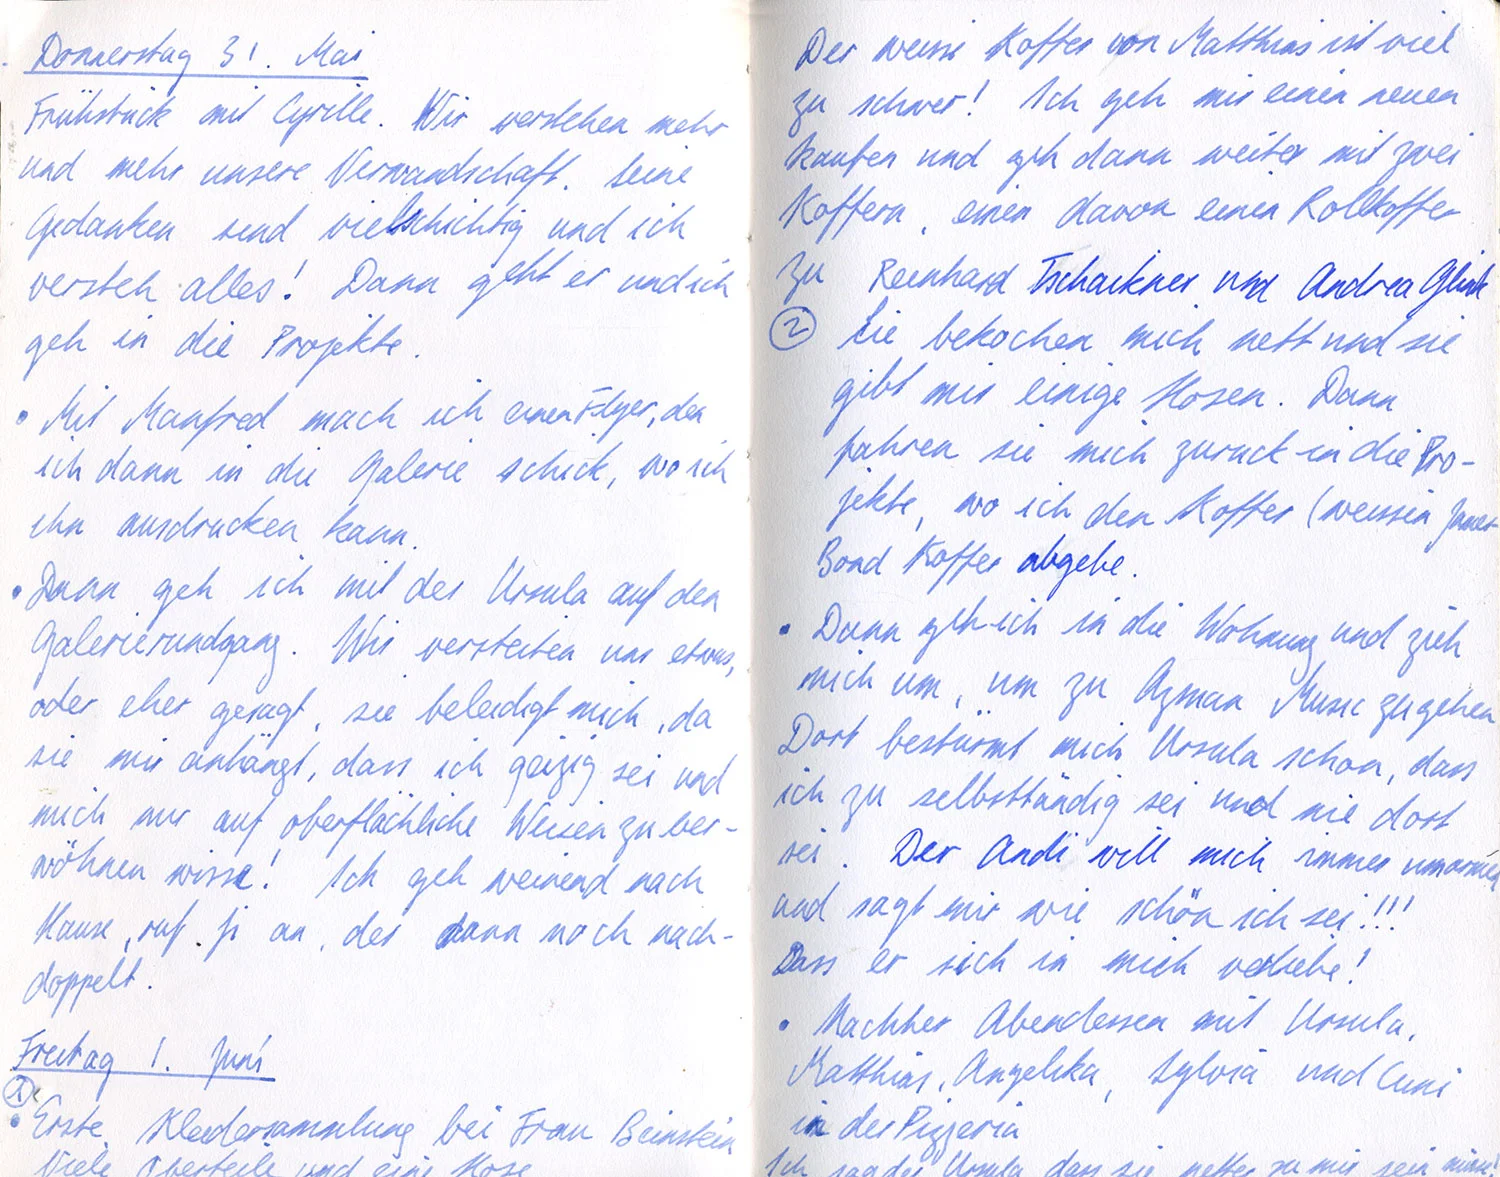 Donnerstag 31. Mai
Frühstück mit Cyrille. Wir verstehen mehr
und mehr unsere Verwandschaft. Seine
Gedanken sind vielschichtig und ich
versteh alles! Dann geht er und ich
geh in die Projekte.
• Mit Manfred mach ich einen Flyer, den
ich dann in die Galerie schick, wo ich
ihn ausdrucken kann.
• Dann geh ich mit der Ursula auf den
Galerierundgang. Wir verstreiten uns etwas,
oder eher gesagt, sie beleidigt mich, da
sie mir anhängt, dass ich geizig sei und
mich nur auf oberflächliche Weisen zu ver-
wöhnen wisse! Ich geh weinend nach
Hause, ruf Ji an, der dann noch nach-
doppelt.
Freitag 1. Juni
1
• Erste Kleidersammlung bei Frau Beinstein
Viele Oberteile und eine Hose
Der weisse Koffer von Matthias ist viel
zu schwer! Ich geh mir einen neuen
kaufen und geh dann weiter mit zwei
Koffern, einen davon einen Rollkoffer
zu Reinhard Tschaikner und Andrea
2 Sie bekochen mich nett und sie
gibt mir einige Hosen. Dann
fahren sie mich zurück in die Pro-
jekte, wo ich den Koffer (weissen James
Bond Koffer abgebe.
• Dann geh ich in die Wohnung und zieh
mich um, um zu Azman Music zu gehen
Dort bestürmt mich Ursula schon, dass
ich zu selbstständig sei und nie dort
sei. Der Andi will mich immer umarmen
und sagt mir wie schön ich sei!!!
Dass er sich in mich verliebe!
• Nachher Abendessen mit Ursula,
Matthias, Angelika, Sylvia und Cuni
in der Pizzeria
Ich sag der Ursula dass sie netter zu mir sein muss!